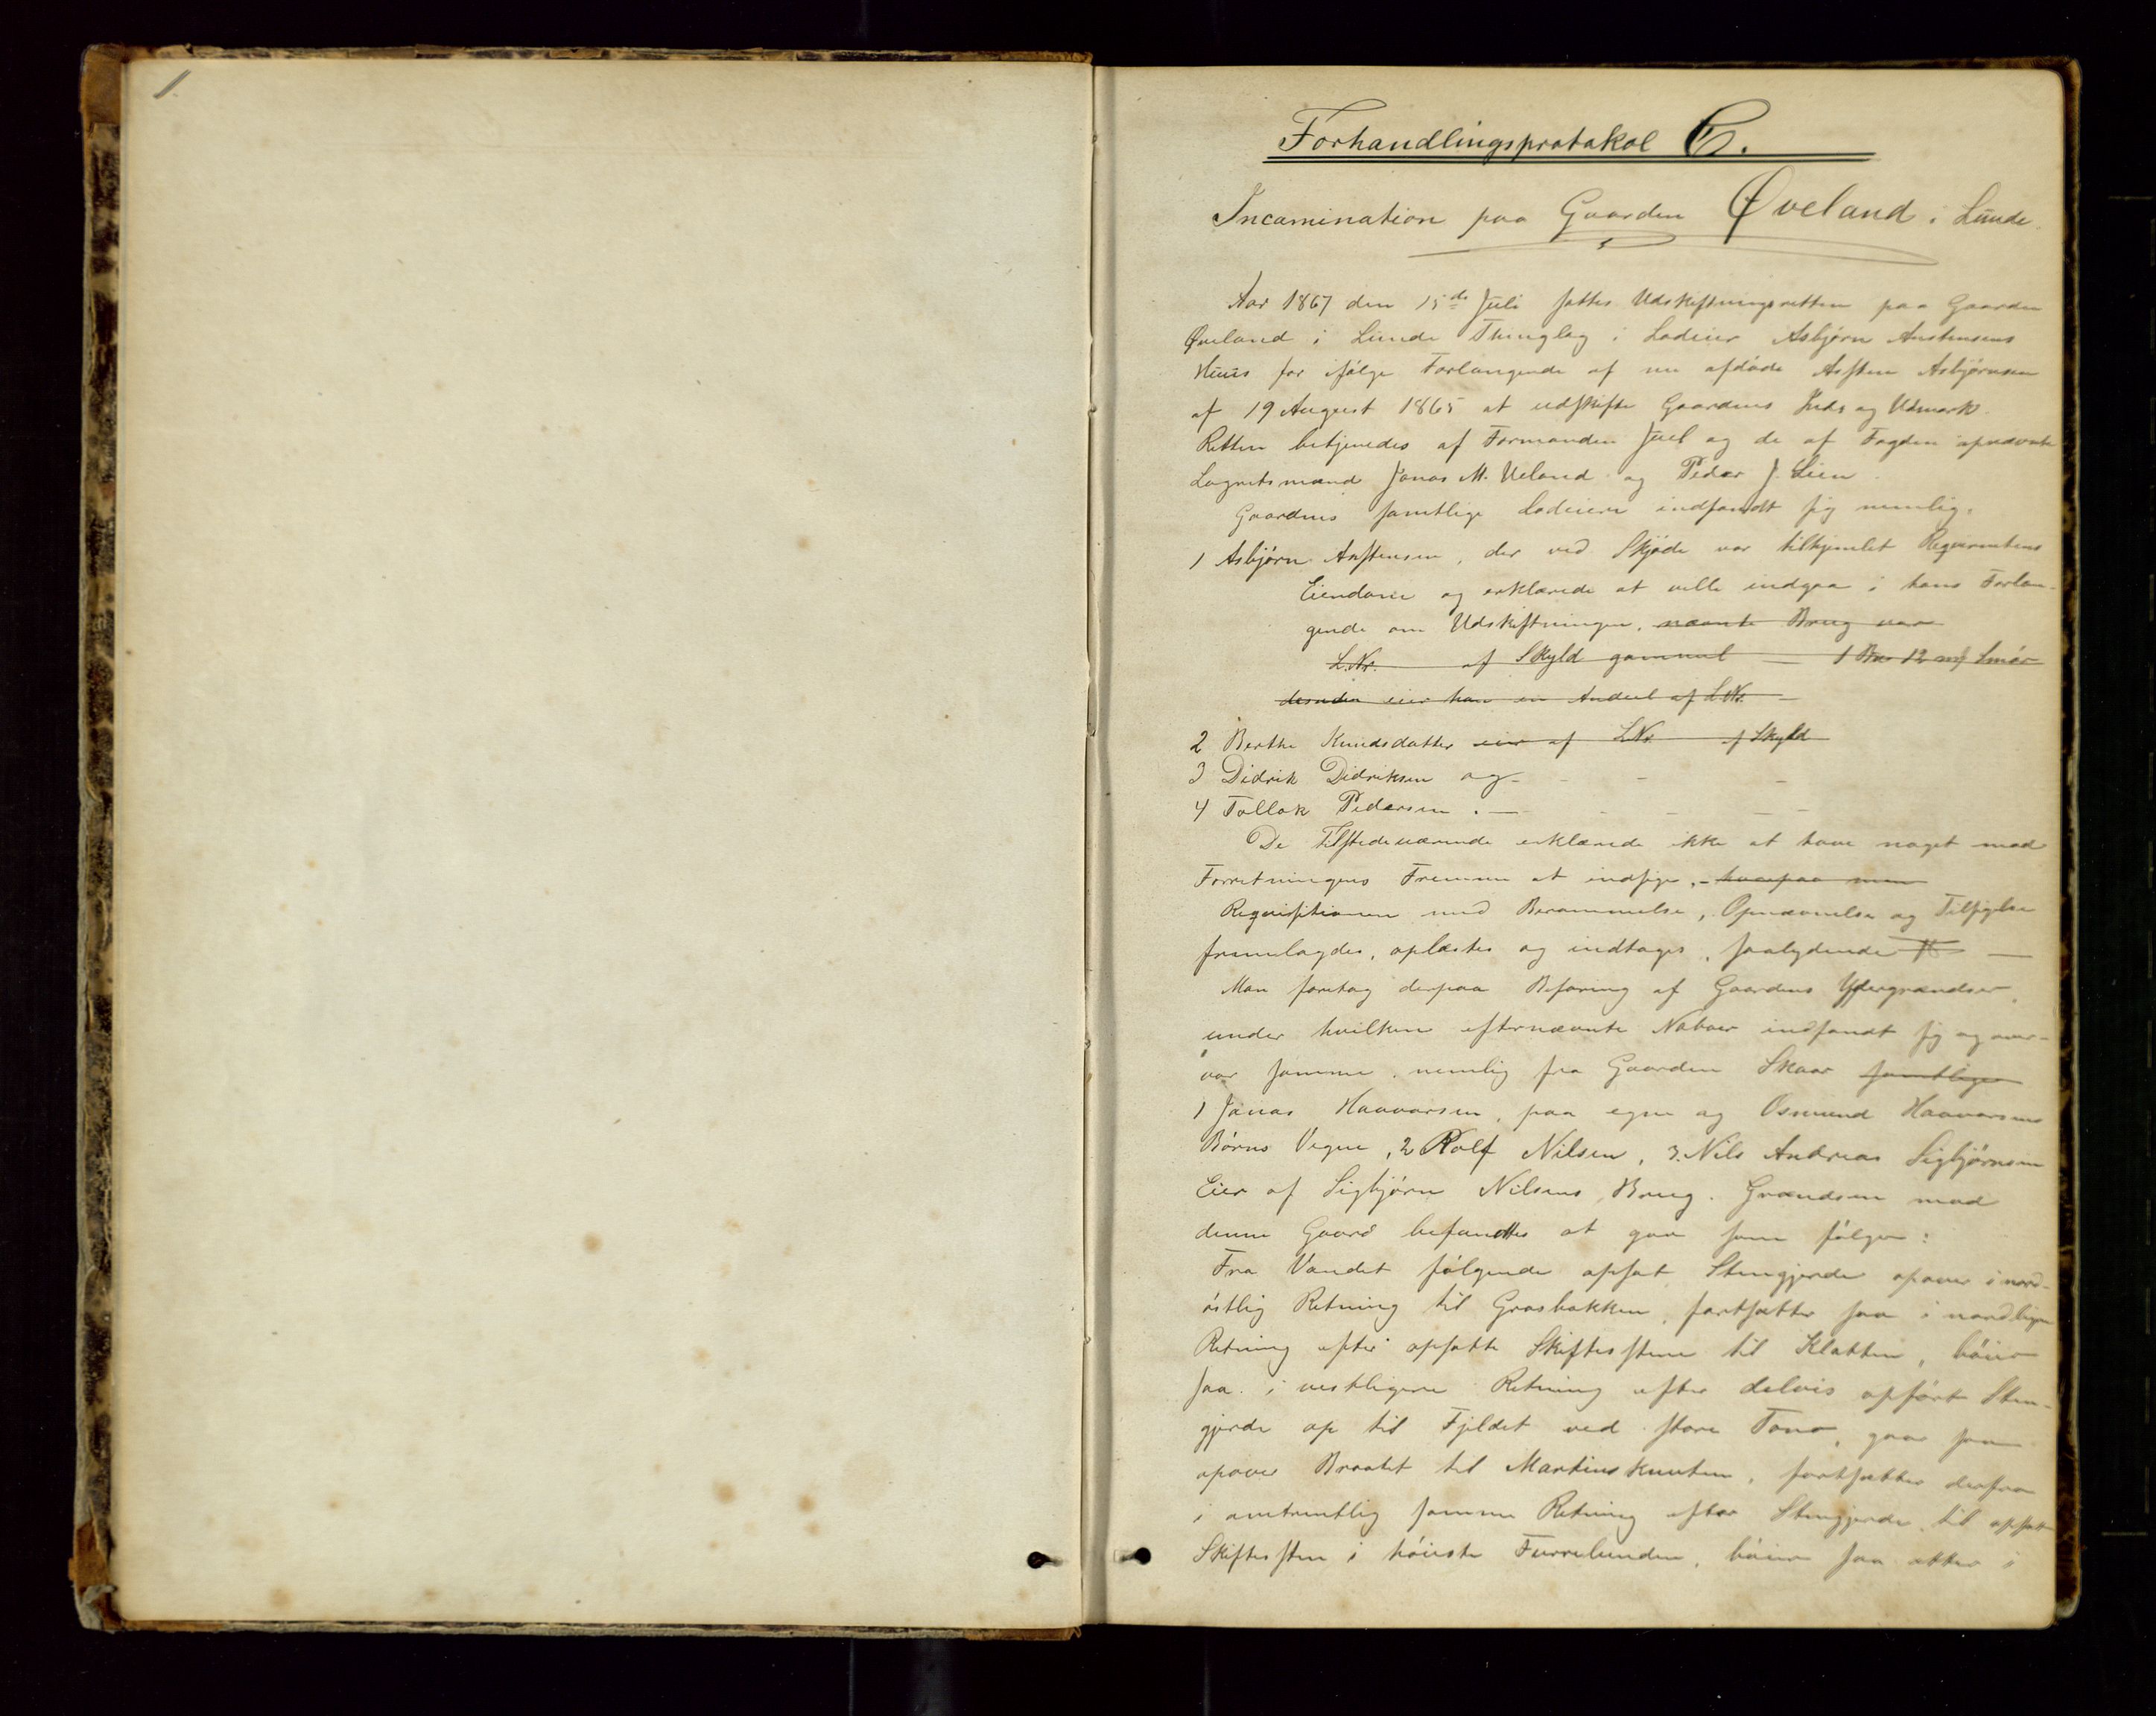 1
Forhandlingsprotokol C.
Incamination paa Gaarden Øveland i Lunde.
Aar 1867 den 15de Juli sattes Udskiftningsretten paa Gaarden
Øveland i Lunde Thinglag i Lodeier Asbjørn Austensens
Huus for ifølge Forlangende af nu afdøde Austen Asbjørnsen
af 19 August 1865 at udskifte Gaardens Inds og Udmark.
Retten betjenedes af Formanden Juel og de af Fogden opnævnte
Lagretsmænd Jonas M. Ueland og Peder J. Lien.
Gaardens samtlige Lodeiere indfandt sig nemlig.
1 Asbjørn Austensen, der ved Skjøde var tilhjemlet Reqvirentens
Eiendom og erklærede at ville indgaa i hans Forlan-
gende om Udskiftningen. nævnte Brug var
L.Nr. af Skyld gammel 1 12 Smør
desuden eier han en Andeel af L.Nr.
2 Berthe Knudsdatter eier af L.Nr. af Skyld
3 Didrik Didriksen og - - -
4 Tollak Pedersen. - - - -
De Tilstedeværende erklærede ikke at have noget mod
Forretningens Fremme at indsige, - hvorpaa man
Reqvisitionen med Berammelse, Opnævnelse og Tilsigelse
fremlagdes, oplæstes og indtages, saalydende
Man foretog derpaa Befaring af Gaardens Ydergrændser,
under hvilken efternævnte Naboer indfandt sig og over-
var samme, nemlig fra Gaarden Skaar samtlige
1 Jonas Haavorsen, paa egne og Osmund Haavorsens
Børns Vegne, 2 Rolf Nilsen, 3. Nils Andreas Sigbjørnsen
Eier af Sigbjørn Nilsens Brug. Grændsen mod
denne Gaard befandtes at gaa som følger:
Fra Vandet følgende opsat Stengjerde opover i nord-
østlig Retning til Grasbakken, fortsætter saa i nordligere
Retning efter opsatte Skiftesstene til Klatten, bøier
saa i vestligere Retning efter delvis opført Sten-
gjerde op til Fjeldet ved store Tono, gaar saa
opover Braatet til Martinsknuten, fortsætter derfra
i omtrentlig samme Retning efter Stengjerde til opsatte
Skiftessten i høieste Furrelunden, bøier saa atter i